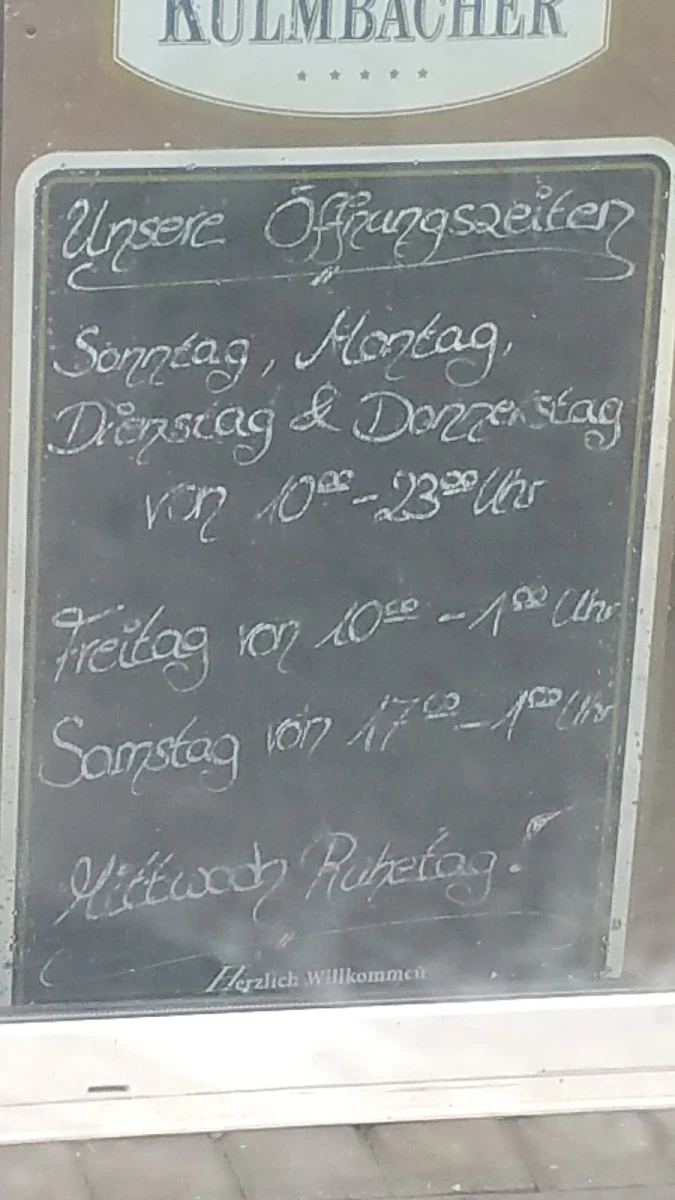 KULMBACHER
Unsere Öffnungszeiten
Sonntag, Montag,
Dienstag & Donnerstag
von 10⁰⁰-23⁰⁰ Uhr
Freitag von 10⁰⁰ - 1⁰⁰ Uhr
Samstag von 17⁰⁰ - 1⁰⁰ Uhr
Mittwoch Ruhetag!
Herzlich Willkommen